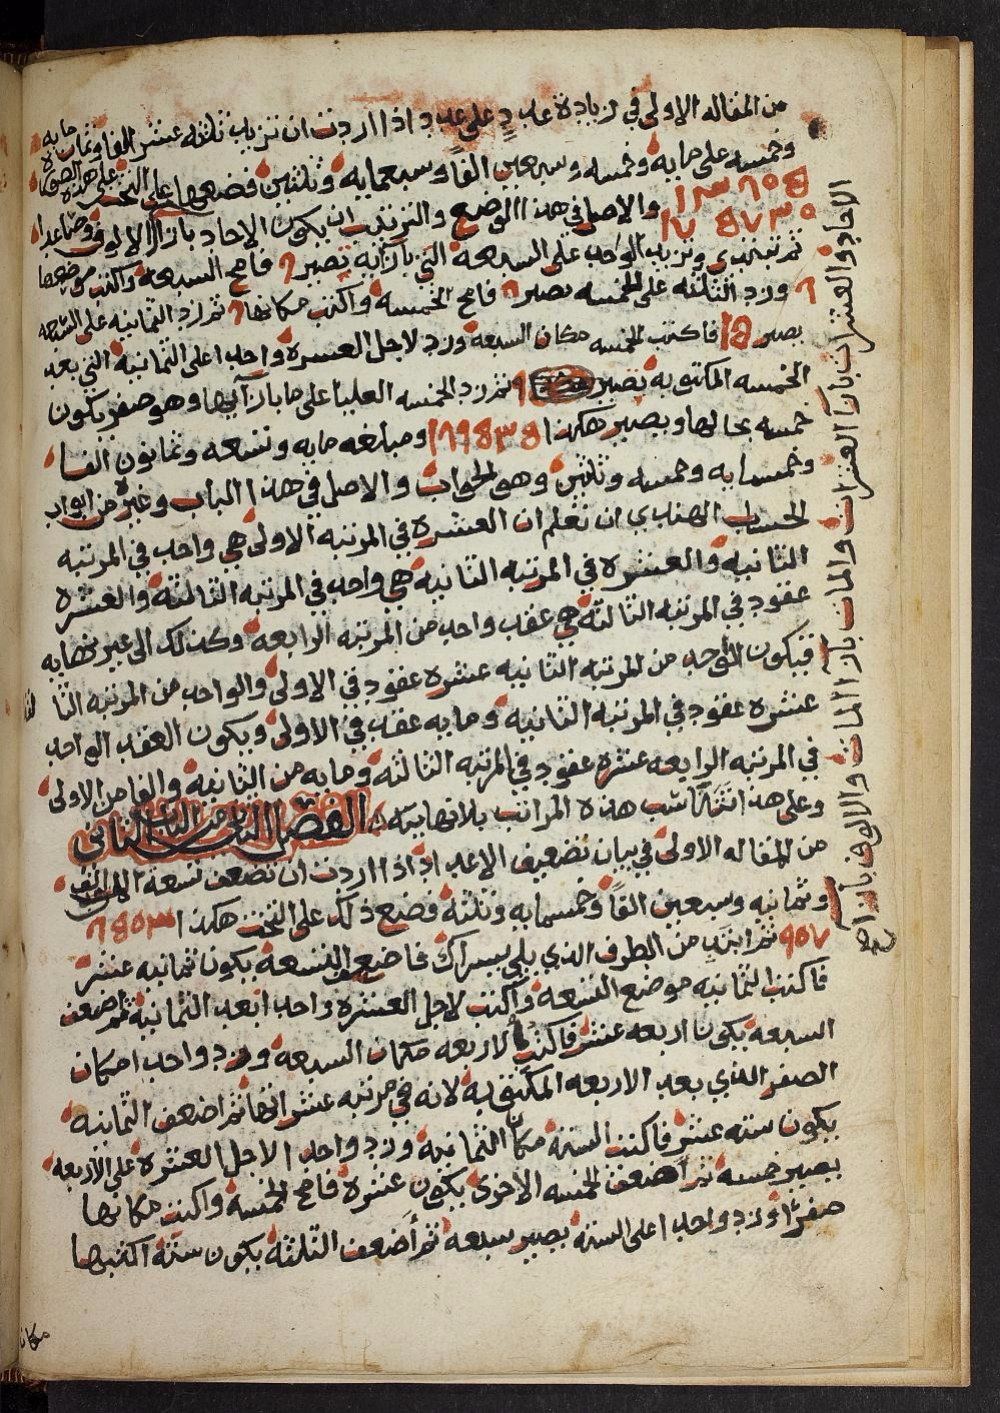 من المقاله الاولى في زيادة عدد على عدد اذا اردت ان تزيد ثلثه عشر الفا وثمان مايه
وخمسه على مايه وخمسه وسبعين الفاً وسبعمايه وثلثين فضعها على التخت على هذه الصوره
١٣٨٠٥ والاصل في هذا الوضع والترتيب ان يكون الاحاد بازا الاحاد والعشرات بازا العشرات والمات بازا المات والالوف بازا الالوف وصاعدا
١٧٥٧٣٠
ثم تبتدي وتزيد الواحد على السبعه التي بازايه تصير ٨ فامح السبعه واكتب موضعها
٨ وزد الثلثه على الخمسه يصير ٨ فامح الخمسه واكتب مكانها ٨ ثم زد الثمانيه على السبعه
يصير ١٥ فاكتب الخمسه مكان السبعه وزد لاجل العشره واحدا على الثمانيه التي بعد
الخمسه المكتوبه تصير ٩ ثم زد الخمسه العليا على ما بازآيها وهو صفر يكون
خمسه بحالها ويصير هكذا ١٨٩٥٣٥ ومبلغه مايه وتسعه وثمانون الفا
وخمسمايه وخمسه وثلثين وهو الجواب والاصل في هذا الباب وغيره من ابواب
الحساب الهندي ان تعلم ان العشره في المرتبه الاولى هي واحد في المرتبه
الثانيه والعشره في المرتبه الثانيه هي واحد في المرتبه الثالثه والعشره
عقود في المرتبه الثالثه هي عقد واحد من المرتبه الرابعه وكذلك الى غير نهايه
فيكون الواحد من المرتبه الثانيه عشره عقود في الاولى والواحد من المرتبه الثا لثه
عشره عقود في المرتبه الثانيه ومايه عقد في الاولى ويكون العقد الواحد
في المرتبه الرابعه عشره عقود في المرتبه الثالثه ومايه من الثانيه والفا من الاولى
وعلى هذا تتناسب هذه المراتب بلا نهايه الفصل الثاني من الباب الثاني
من المقاله الاولى في بيان تضعيف الاعداد اذا اردت ان تضعف تسعه الاف الف
وثمانيه وسبعين الفاً وخمسمايه وثلثه فضع ذلك على التخت هكذا ٧٨٥٠٣
٩٠ ثم ابتد من الطرف الذي يلي يسارك فاضعف التسعه يكون ثمانيه عشر
فاكتب الثمانيه موضع التسعه واكتب لاجل العشره واحدا بعد الثمانيه ثم اضعف
السبعه يكون اربعه عشر فاكتب الاربعه مكان السبعه وزد واحدا مكان
الصفر الذي بعد الاربعه المكتوبه لانه في مرتبه عشراتها ثم اضعف الثمانيه
يكون سته عشر فاكتب السته مكان الثمانيه وزد واحدا لاجل العشره على الاربعه
يصير خمسه ثم اضعف الخمسه الاخرى يكون عشره فامح الخمسه واكتب مكانها
صفرا وزد واحدا على السته يصير سبعه ثم أضعف الثلثه يكون سته اكتبها
مكان